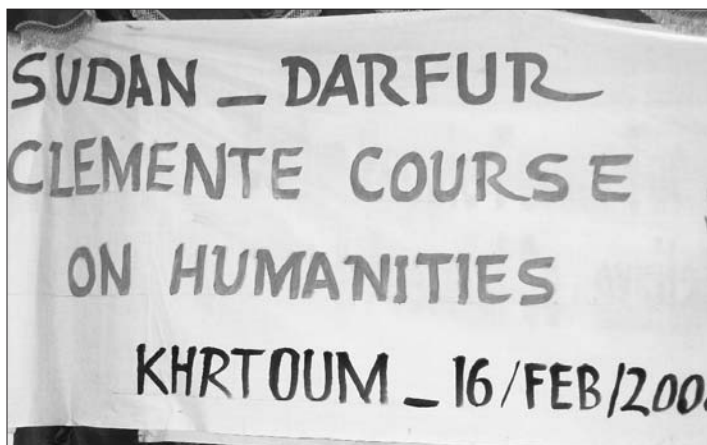 SUDAN _ DARFUR
CLEMENTE COURSE
ON HUMANITIES
KHRTOUM _ 16/FEB/200